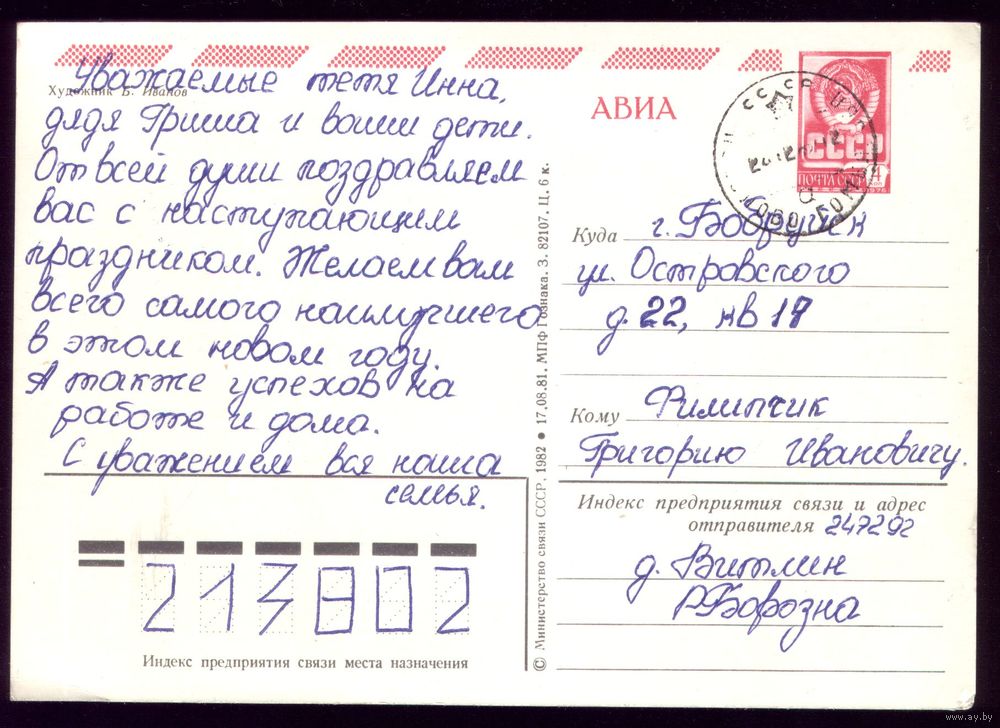 Художник Б. Иванов
Уважаемые тетя Инна,
дядя Гриша и ваши дети.
От всей души поздравляем
вас с наступающим
праздником. Желаем вам
всего самого наилучшего
в этом новом году.
А также успехов на
работе и дома.
С уважением вся наша
семья.
213802
Индекс предприятия связи места назначения
© Министерство связи СССР, 1982 • 17.08.81. МПФ Гознака. З. 82107. Ц. 6 к.
АВИА
СССР
ПОЧТА СССР
Куда г. Бобруйск
ул. Островского
д. 22, кв 17
Кому Филипчик
Григорию Ивановичу.
Индекс предприятия связи и адрес
отправителя 247292
д. Витлин
Р Борозна
www.ay.by